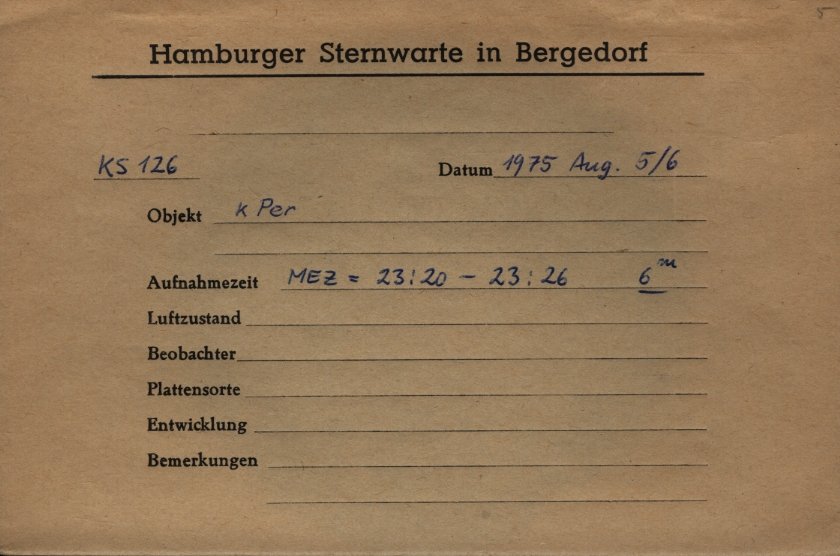 5
Hamburger Sternwarte in Bergedorf
KS 126 Datum 1975 Aug. 5/6
Objekt k Per
Aufnahmezeit MEZ = 23:20 - 23:26 6m
Luftzustand
Beobachter
Plattensorte
Entwicklung
Bemerkungen